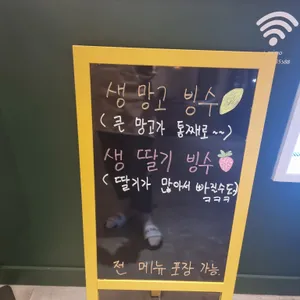 생 망고 빙수
( 큰 망고가 통째로~~)
생 딸기 빙수
( 딸기가 많아서 빠질수도)
ㅋㅋㅋ
전 메뉴 포장 가능